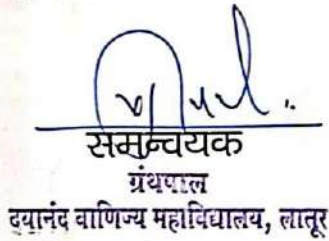 समन्वयक
ग्रंथपाल
दयानंद वाणिज्य महाविद्यालय, लातूर